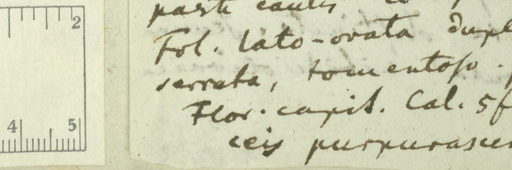 2
4 5
parte caulis co
Fol. lato-ovata dupl
serrata, tomentoso.
Flor. capit. Cal. 5f
ceis purpurascen